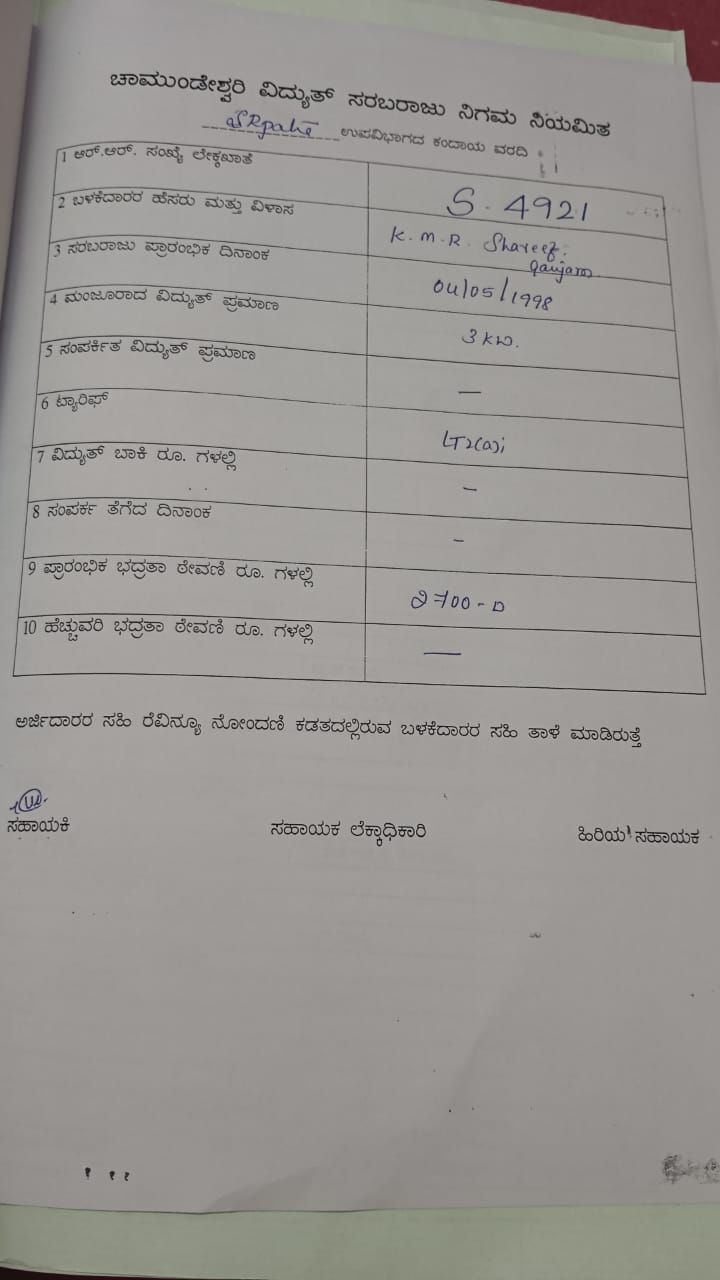 ಚಾಮುಂಡೇಶ್ವರಿ ವಿದ್ಯುತ್ ಸರಬರಾಜು ನಿಗಮ ನಿಯಮಿತ
ಉಪವಿಭಾಗದ ಕಂದಾಯ ವರದಿ
1 ಆರ್.ಆರ್. ಸಂಖ್ಯೆ ಲೇಕ್ಕಖಾತೆ S-4921
2 ಬಳಕೆದಾರರ ಹೆಸರು ಮತ್ತು ವಿಳಾಸ K.M.R. Shareef. Ganjam
3 ಸರಬರಾಜು ಪ್ರಾರಂಭಿಕ ದಿನಾಂಕ 04/05/1998
4 ಮಂಜೂರಾದ ವಿದ್ಯುತ್ ಪ್ರಮಾಣ 3 KW.
5 ಸಂಪರ್ಕಿತ ವಿದ್ಯುತ್ ಪ್ರಮಾಣ —
6 ಟ್ಯಾರಿಫ್ LT2(a)i
7 ವಿದ್ಯುತ್ ಬಾಕಿ ರೂ. ಗಳಲ್ಲಿ -
8 ಸಂಪರ್ಕ ತೆಗೆದ ದಿನಾಂಕ -
9 ಪ್ರಾರಂಭಿಕ ಭದ್ರತಾ ಠೇವಣಿ ರೂ. ಗಳಲ್ಲಿ
10 ಹೆಚ್ಚುವರಿ ಭದ್ರತಾ ಠೇವಣಿ ರೂ. ಗಳಲ್ಲಿ —
ಅರ್ಜಿದಾರರ ಸಹಿ ರೆವಿನ್ಯೂ ನೋಂದಣಿ ಕಡತದಲ್ಲಿರುವ ಬಳಕೆದಾರರ ಸಹಿ ತಾಳೆ ಮಾಡಿರುತ್ತೆ
ಸಹಾಯಕಿ ಸಹಾಯಕ ಲೆಕ್ಕಾಧಿಕಾರಿ ಹಿರಿಯ ಸಹಾಯಕ